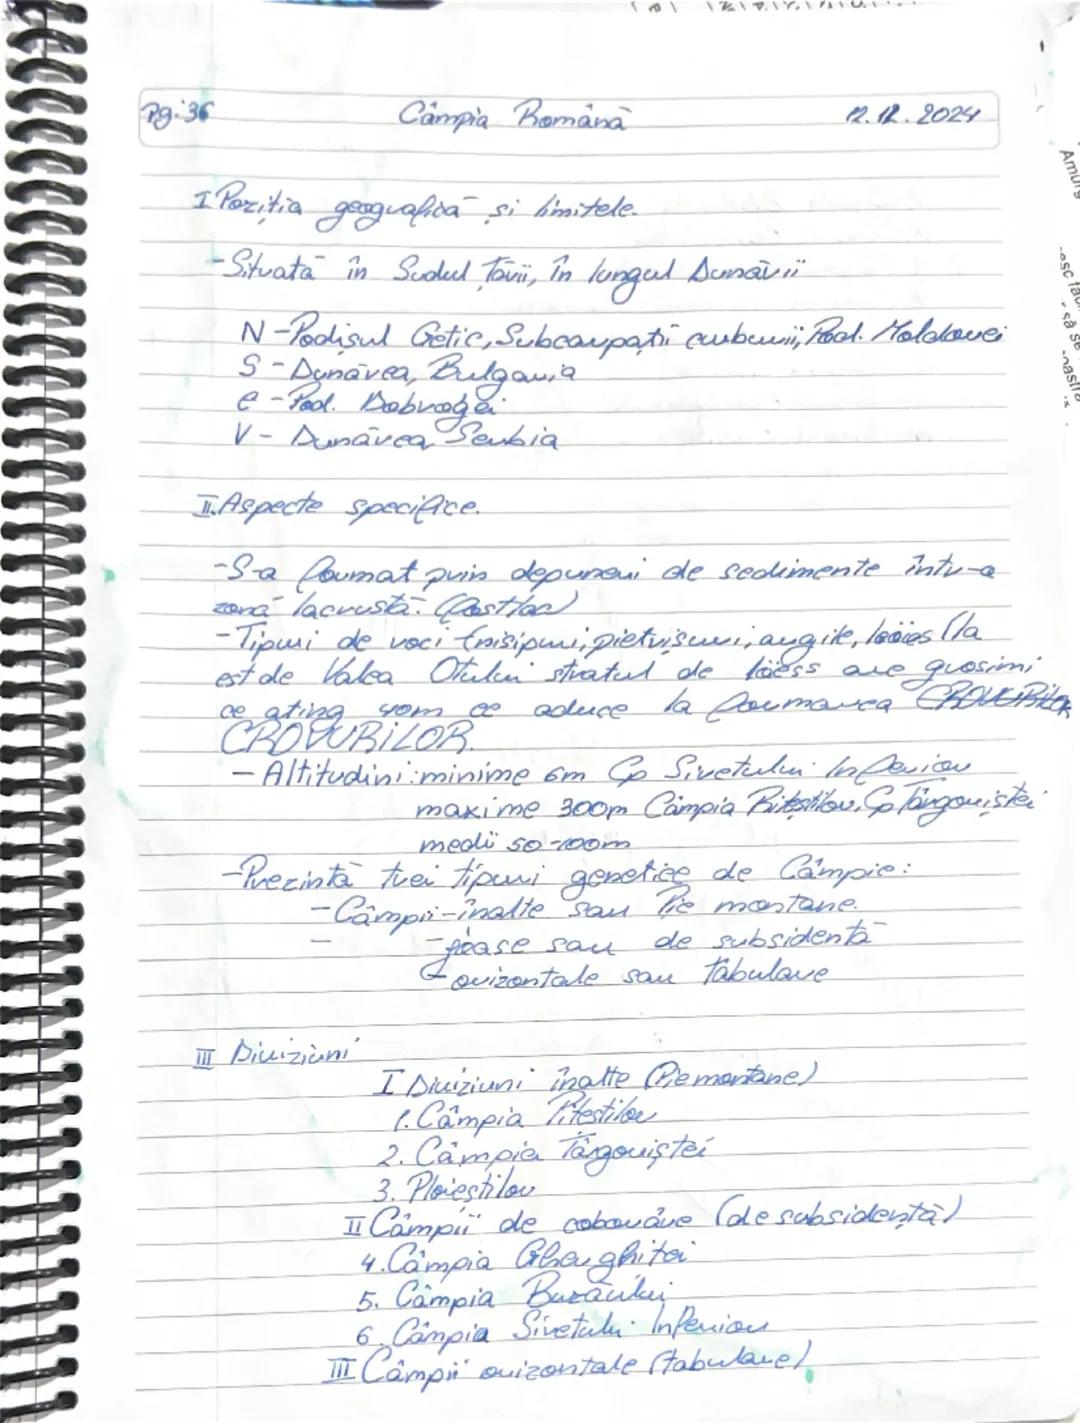 Pg.36 Câmpia Română 12.12.2024
I Poziția geografică și limitele.
-Situată în Sudul Țării, în lungul Dunării
N-Podișul Getic, Subcarpații curburii, Pod. Moldovei
S-Dunărea, Bulgaria
E-Pod. Dobrogei
V-Dunărea, Serbia
II.Aspecte specifice.
-S-a format prin depuneri de sedimente într-o
zonă lacrustă.
-Tipuri de roci (nisipuri, pietrișuri, argile, loess (la
est de Valea Oltului stratul de löess are grosimi
ce ating 40m ce aduce la formarea CROVURILOR
CROVURILOR.
-Altitudini: minime 6m Cp Siretului Inferior
maxime 300m Câmpia Piteștilor, Cp Târgoviștei
medii 50-100m
-Prezintă trei tipuri genetice de Câmpie:
-Câmpii-înalte sau Piemontane.
-joase sau de subsidență
-orizontale sau tabulare
III Diviziuni
I Diviziuni înalte (Piemontane)
1. Câmpia Piteștilor
2. Câmpia Târgoviștei
3. Ploieștilor
II Câmpii de coborâre (de subsidență)
4. Câmpia Gherghitei
5. Câmpia Buzăului
6. Câmpia Siretului Inferior
III Câmpii orizontale (tabulare)